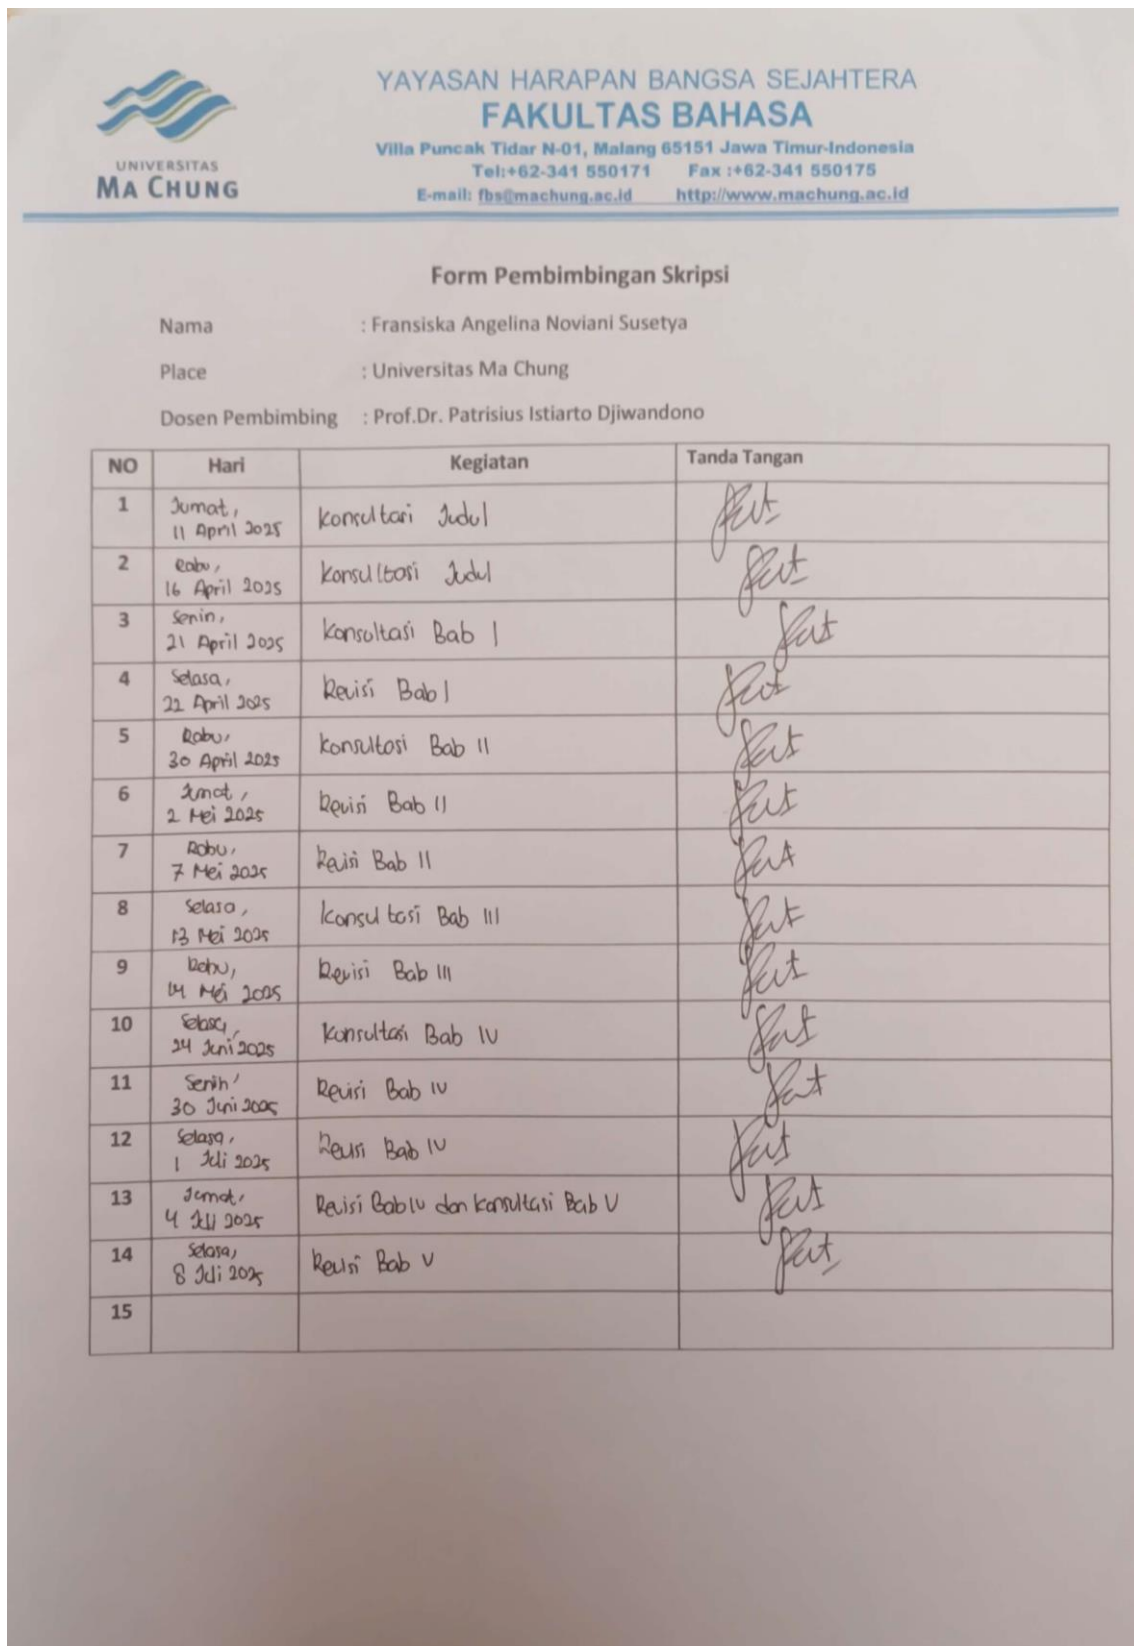 UNIVERSITAS
MA CHUNG
YAYASAN HARAPAN BANGSA SEJAHTERA
FAKULTAS BAHASA
Villa Puncak Tidar N-01, Malang 65151 Jawa Timur-Indonesia
Tel:+62-341 550171 Fax :+62-341 550175
E-mail: fbs@machung.ac.id http://www.machung.ac.id
Form Pembimbingan Skripsi
Nama : Fransiska Angelina Noviani Susetya
Place : Universitas Ma Chung
Dosen Pembimbing : Prof.Dr. Patrisius Istiarto Djiwandono
NO Hari Kegiatan Tanda Tangan
1 Jumat,
11 April 2025 Konsultasi Judul
2 Rabu,
16 April 2025 Konsultasi Judul
3 Senin,
21 April 2025 Konsultasi Bab I
4 Selasa,
22 April 2025 Revisi Bab I
5 Rabu,
30 April 2025 Konsultasi Bab II
6 Jumat,
2 Mei 2025 Revisi Bab II
7 Rabu,
7 Mei 2025 Revisi Bab II
8 Selasa,
13 Mei 2025 Konsultasi Bab III
9 Rabu,
14 Mei 2025 Revisi Bab III
10 Selasa,
24 Juni 2025 Konsultasi Bab IV
11 Senin,
30 Juni 2025 Revisi Bab IV
12 Selasa,
1 Juli 2025 Revisi Bab IV
13 Jumat,
4 Juli 2025 Revisi Bab IV dan Konsultasi Bab V
14 Selasa,
8 Juli 2025 Revisi Bab V
15